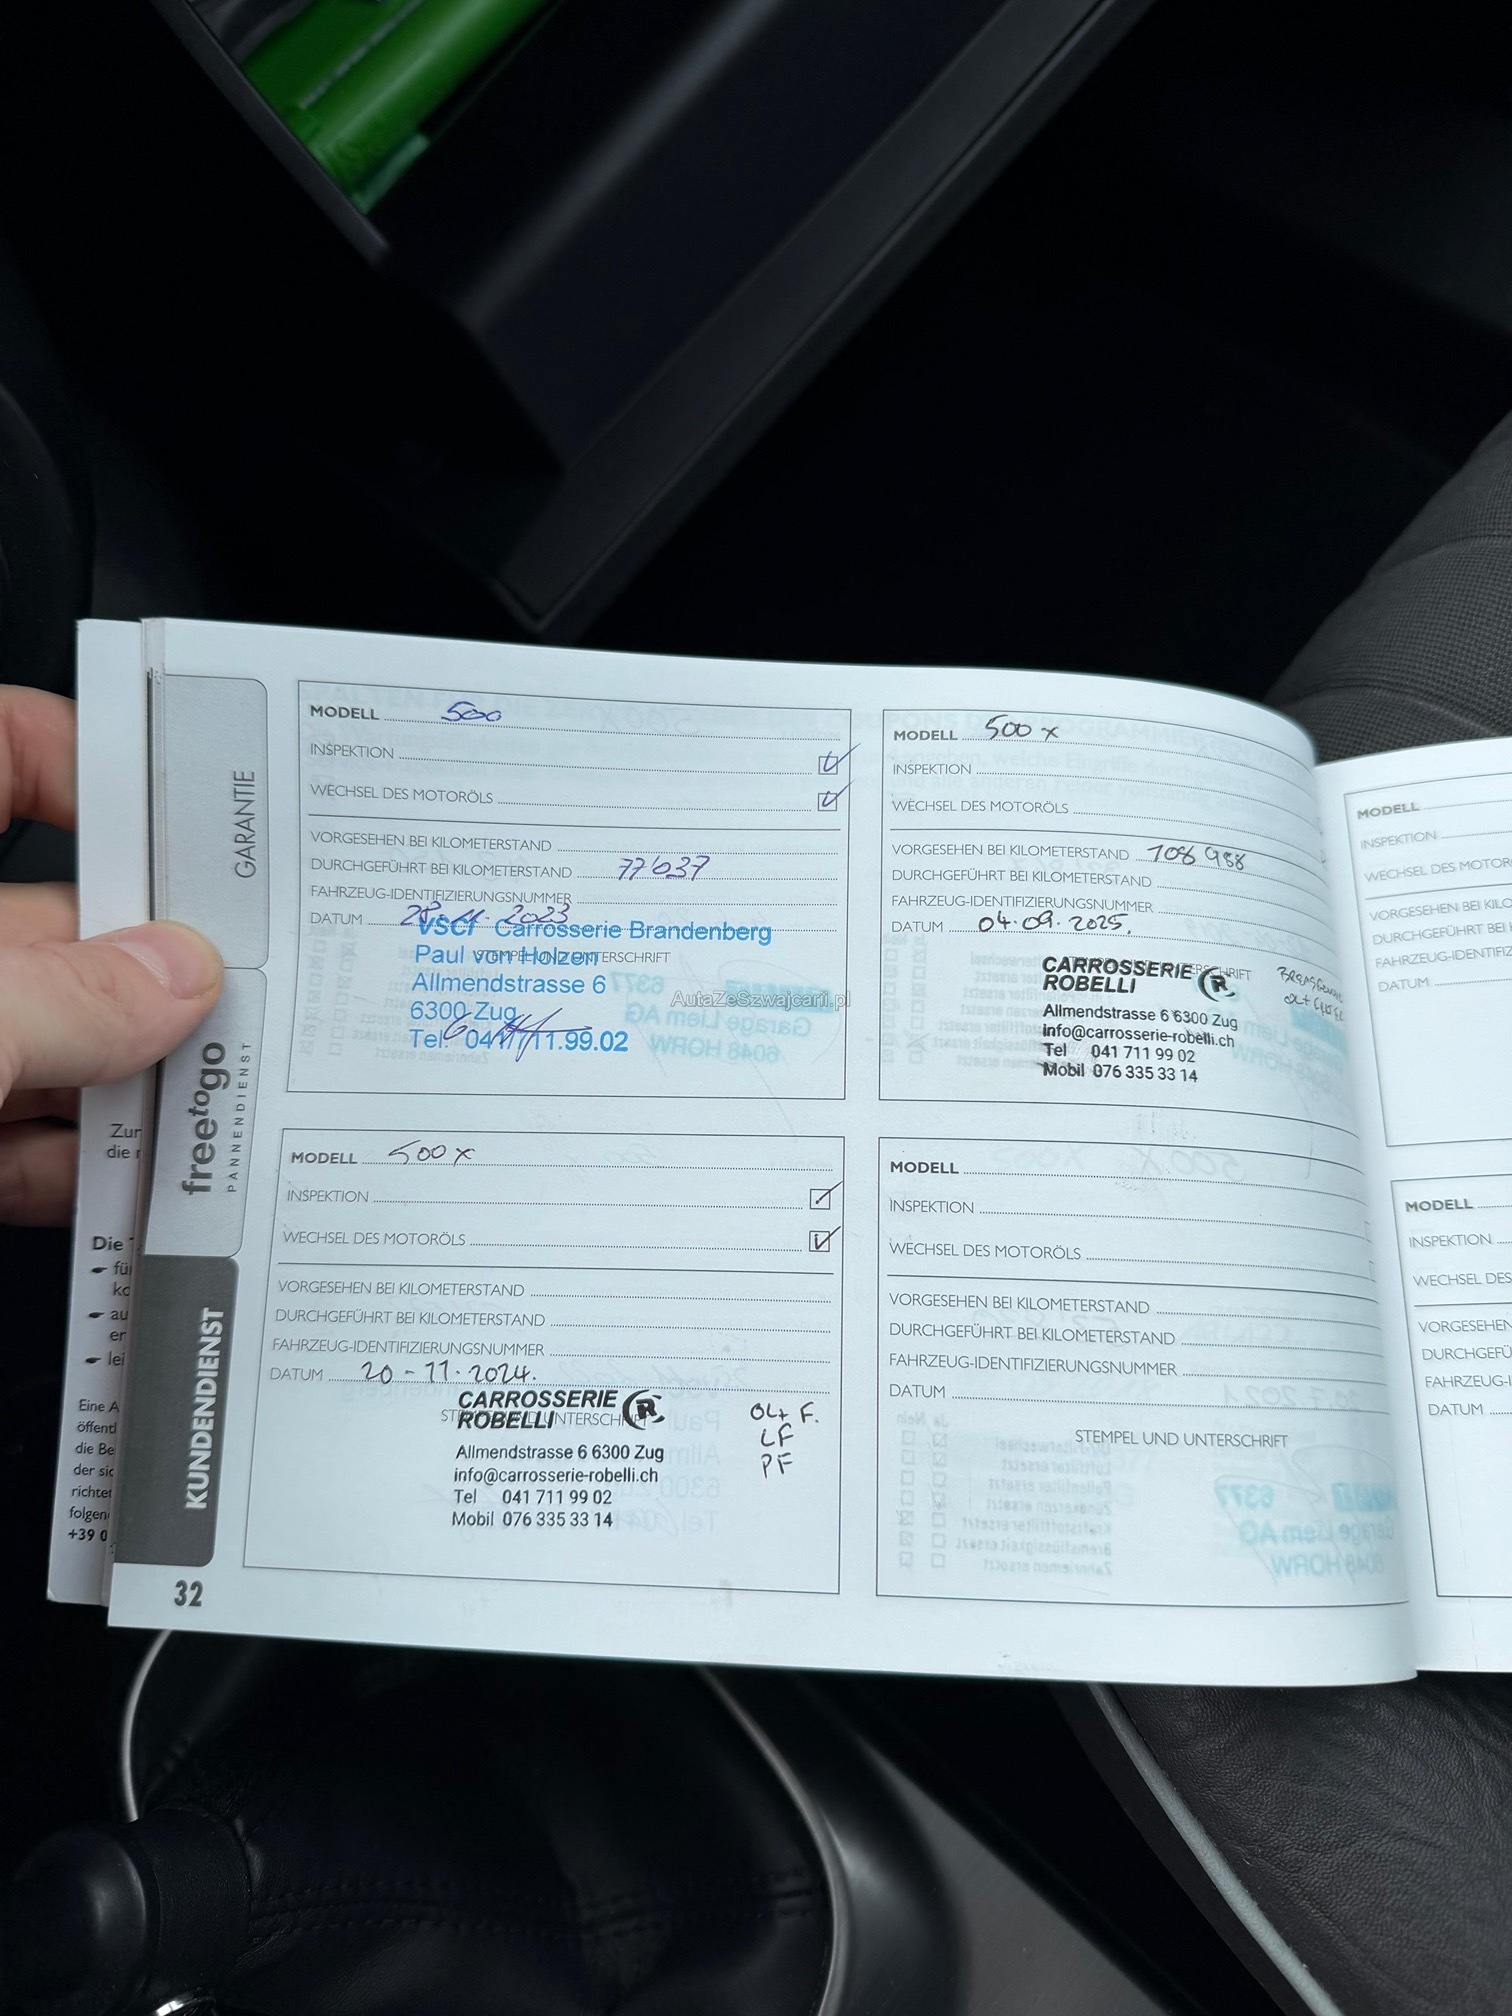 GARANTIE
freetogo
PANNENDIENST
KUNDENDIENST
32
Zur
die
Die
fü
ko
au
er
lei
Eine A
öffentl
die Be
der sic
richtet
folgen
+39 0
MODELL 500
INSPEKTION
WECHSEL DES MOTORÖLS
VORGESEHEN BEI KILOMETERSTAND
DURCHGEFÜHRT BEI KILOMETERSTAND 77'037
FAHRZEUG-IDENTIFIZIERUNGSNUMMER
DATUM 11. 2023
STEMPEL UND UNTERSCHRIFT
VSCI Carrosserie Brandenberg
Paul von Holzen
Allmendstrasse 6
6300 Zug
Tel. 041 711.99.02
MODELL 500 x
INSPEKTION
WECHSEL DES MOTORÖLS
VORGESEHEN BEI KILOMETERSTAND 108 988
DURCHGEFÜHRT BEI KILOMETERSTAND
FAHRZEUG-IDENTIFIZIERUNGSNUMMER
DATUM 04.09.2025.
STEMPEL UND UNTERSCHRIFT
CARROSSERIE
ROBELLI
Allmendstrasse 6 6300 Zug
info@carrosserie-robelli.ch
Tel 041 711 99 02
Mobil 076 335 33 14
AutaZeSzwajcarii.pl
MODELL 500 x
INSPEKTION
WECHSEL DES MOTORÖLS
VORGESEHEN BEI KILOMETERSTAND
DURCHGEFÜHRT BEI KILOMETERSTAND
FAHRZEUG-IDENTIFIZIERUNGSNUMMER
DATUM 20-11.2024.
STEMPEL UND UNTERSCHRIFT
CARROSSERIE
ROBELLI
Allmendstrasse 6 6300 Zug
info@carrosserie-robelli.ch
Tel 041 711 99 02
Mobil 076 335 33 14
OL+ F.
LF
PF
MODELL
INSPEKTION
WECHSEL DES MOTORÖLS
VORGESEHEN BEI KILOMETERSTAND
DURCHGEFÜHRT BEI KILOMETERSTAND
FAHRZEUG-IDENTIFIZIERUNGSNUMMER
DATUM
STEMPEL UND UNTERSCHRIFT
MODELL
INSPEKTION
WECHSEL DES MOTOR
VORGESEHEN BEI KILO
DURCHGEFÜHRT BEI
FAHRZEUG-IDENTIFIZ
DATUM
MODELL
INSPEKTION
WECHSEL DES
VORGESEHEN
DURCHGEFÜ
FAHRZEUG-I
DATUM